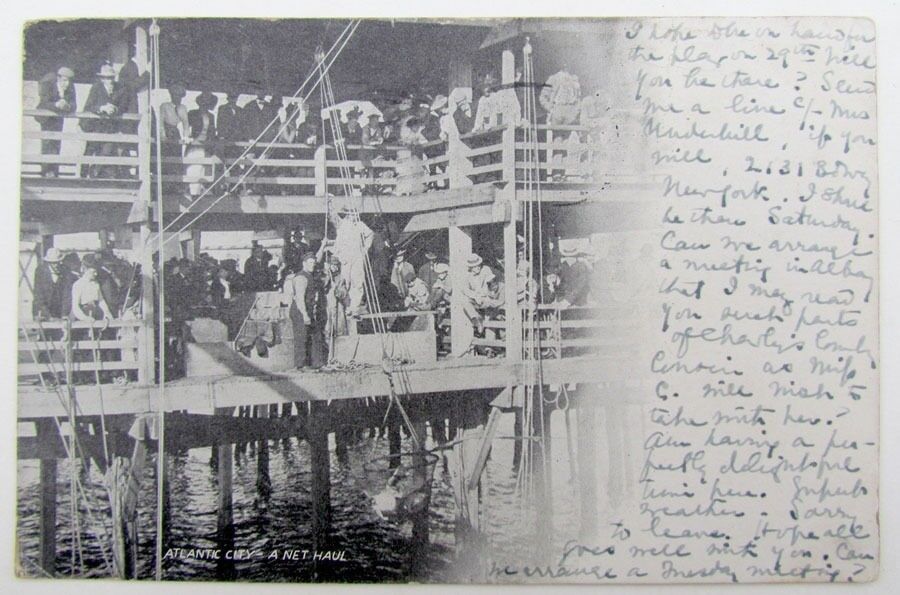 I hope to be on hand for
the play on 29th Will
you be there? Send
me a line c/- Mrs
Underhill, if you
will, 2131 Bdwy
New York. I shall
be there Saturday.
Can we arrange
a meeting in Albany
that I may read
you such parts
of Charley's
as Miss
C. will wish to
take with her?
Am having a per-
fectly delightful
time here. Superb
weather. Sorry
to leave. Hope all
goes well with you. Can
we arrange a Tuesday meeting?
ATLANTIC CITY - A NET HAUL